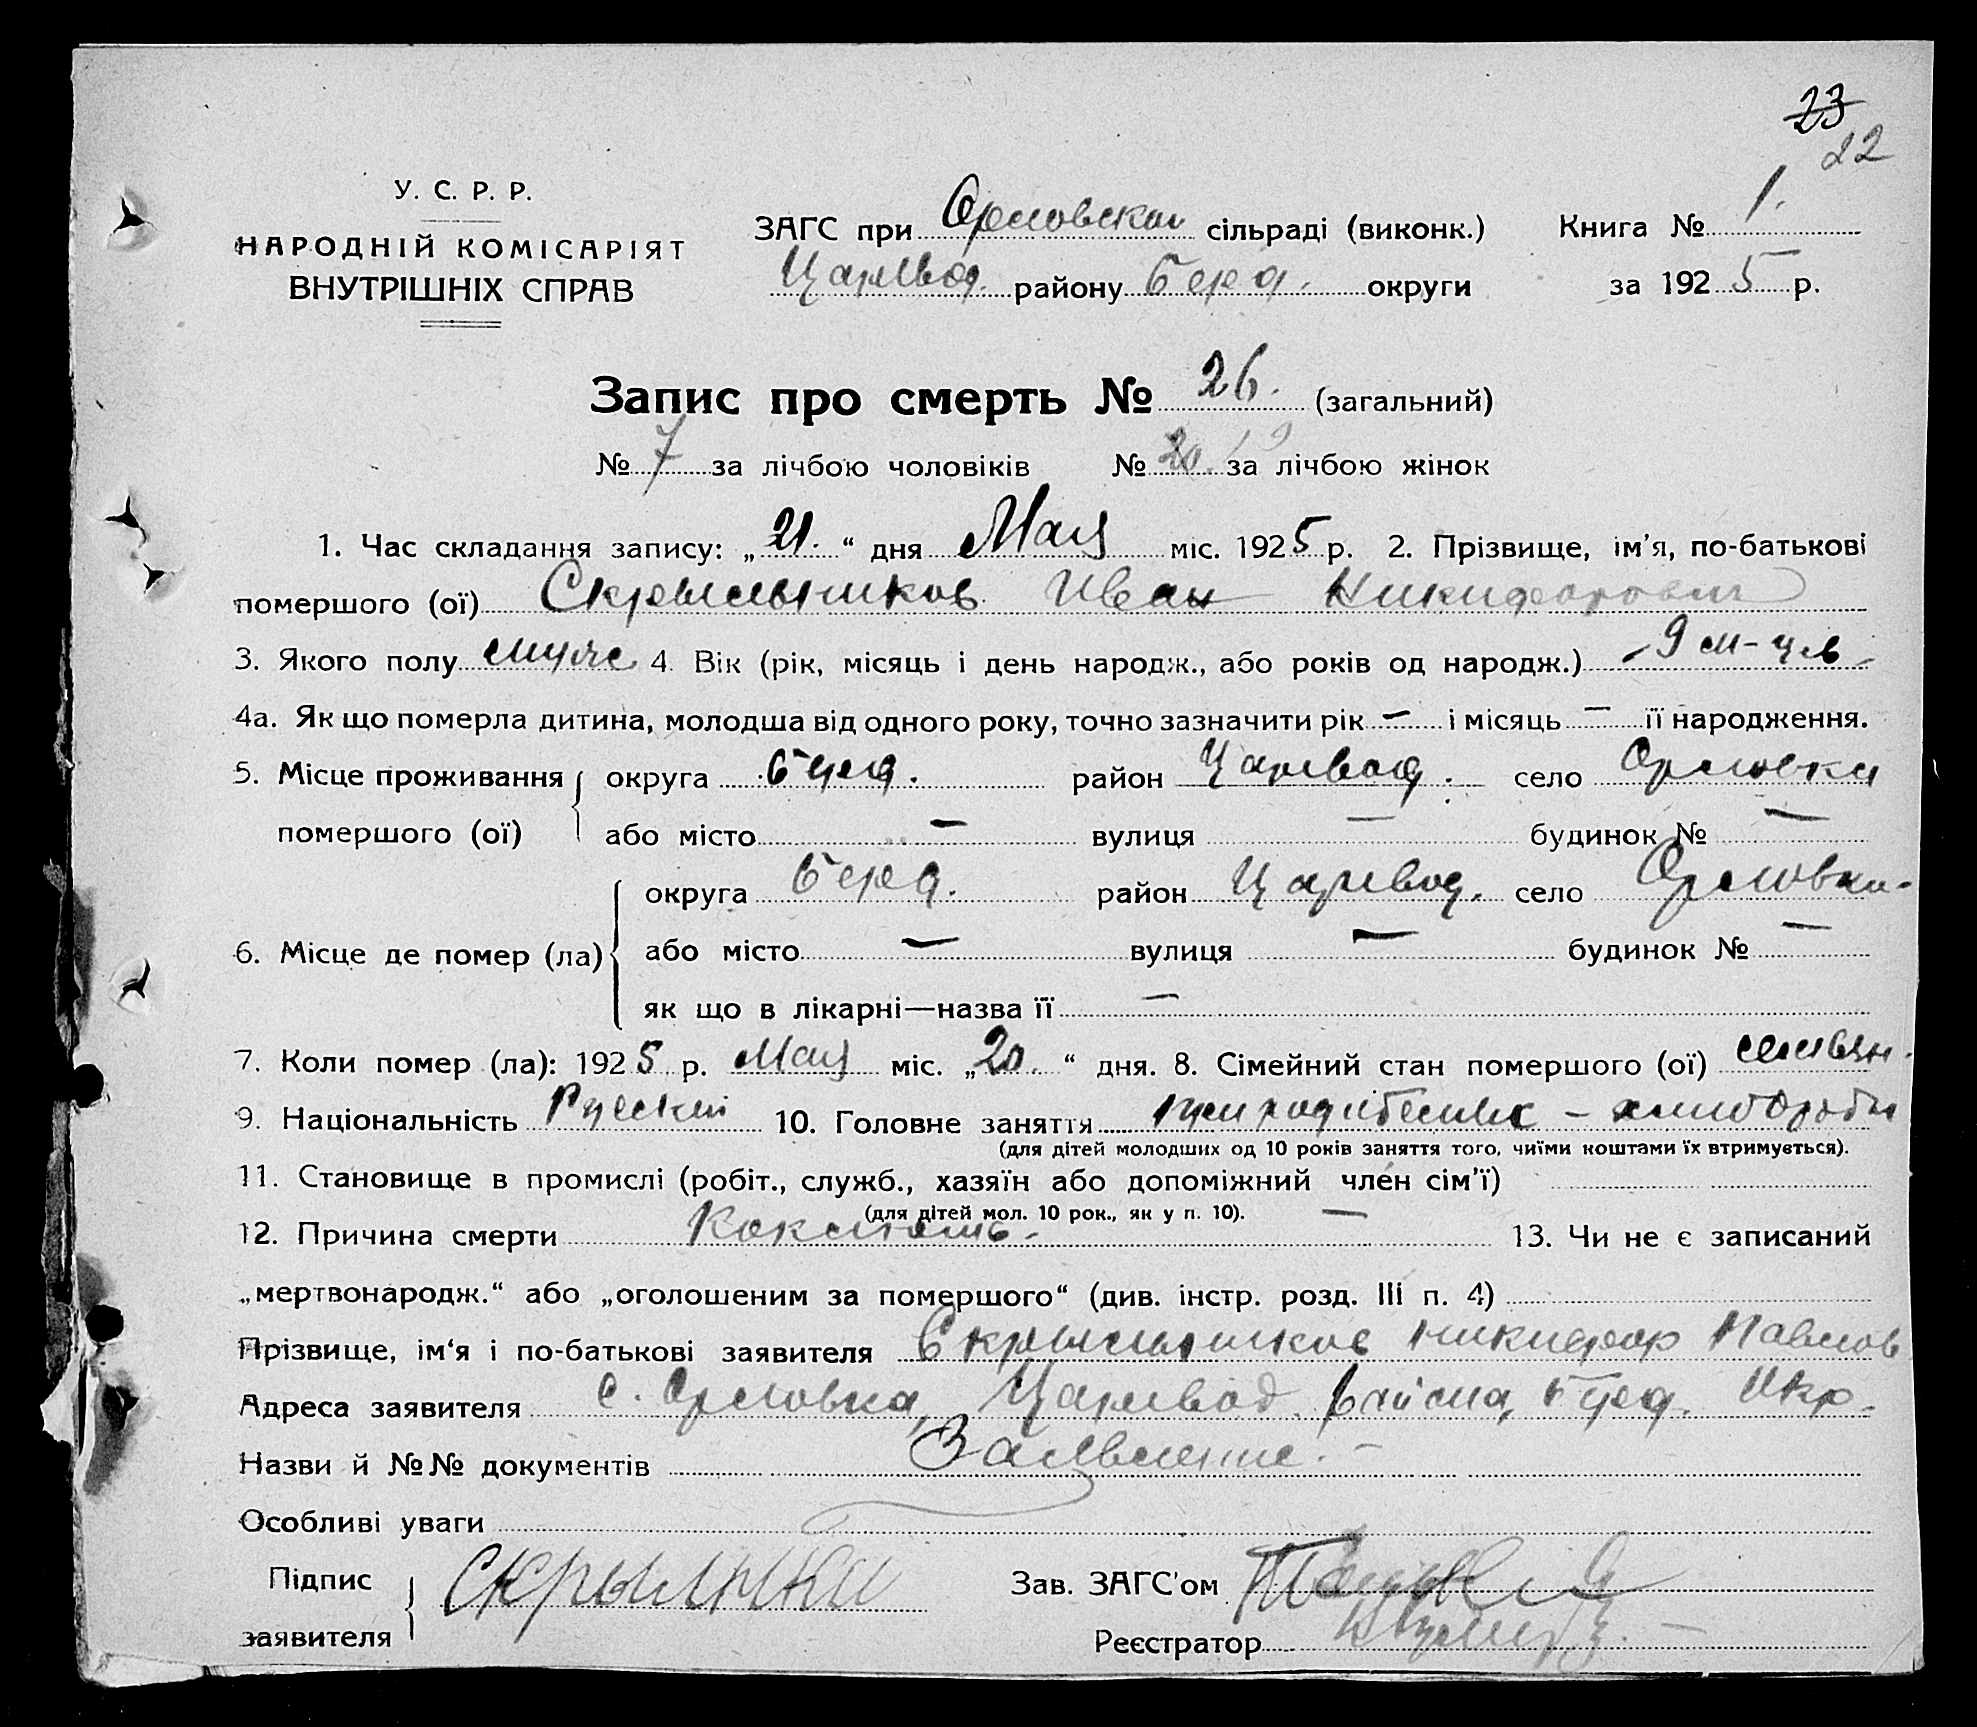 23
22
У. С. Р. Р.
НАРОДНІЙ КОМІСАРІЯТ
ВНУТРІШНІХ СПРАВ
ЗАГС при Орловском сільраді (виконк.) Книга № 1.
Царевод. району Берд. округи за 1925 р.
Запис про смерть № 26. (загальний)
№ 7 за лічбою чоловіків № 19 за лічбою жінок
1. Час складання запису: „21." дня Мая міс. 1925 р. 2. Прізвище, ім'я, по-батькові
помершого (ої) Скрыльников Иван Никифорович
3. Якого полу муж 4. Вік (рік, місяць і день народж., або років од народж.) 9 м-цев
4а. Як що померла дитина, молодша від одного року, точно зазначити рік — і місяць — її народження.
5. Місце проживання округа Берд. район Царевод. село Орловки
помершого (ої) або місто — вулиця — будинок № —
округа Берд. район Царевод. село Орловки
6. Місце де помер (ла) або місто — вулиця — будинок № —
як що в лікарні—назва її —
7. Коли помер (ла): 1925 р. Мая міс. „20." дня. 8. Сімейний стан помершого (ої)
9. Національність Русский 10. Головне заняття хлебороб
(для дітей молодших од 10 років заняття того, чиїми коштами їх втримується).
11. Становище в промислі (робіт., служб., хазяїн або допоміжний член сім'ї)
(для дітей мол. 10 рок., як у п. 10). —
12. Причина смерти Коклюш 13. Чи не є записаний
„мертвонародж." або „оголошеним за помершого" (див. інстр. розд. III п. 4)
Прізвище, ім'я і по-батькові заявителя Скрыльников Никифор Павлов
Адреса заявителя с. Орловка, Царевод. района, Берд. Окр.
Назви й №№ документів Заявление. —
Особливі уваги
Підпис
заявителя Скрылнков
Зав. ЗАГС'ом
Реєстратор